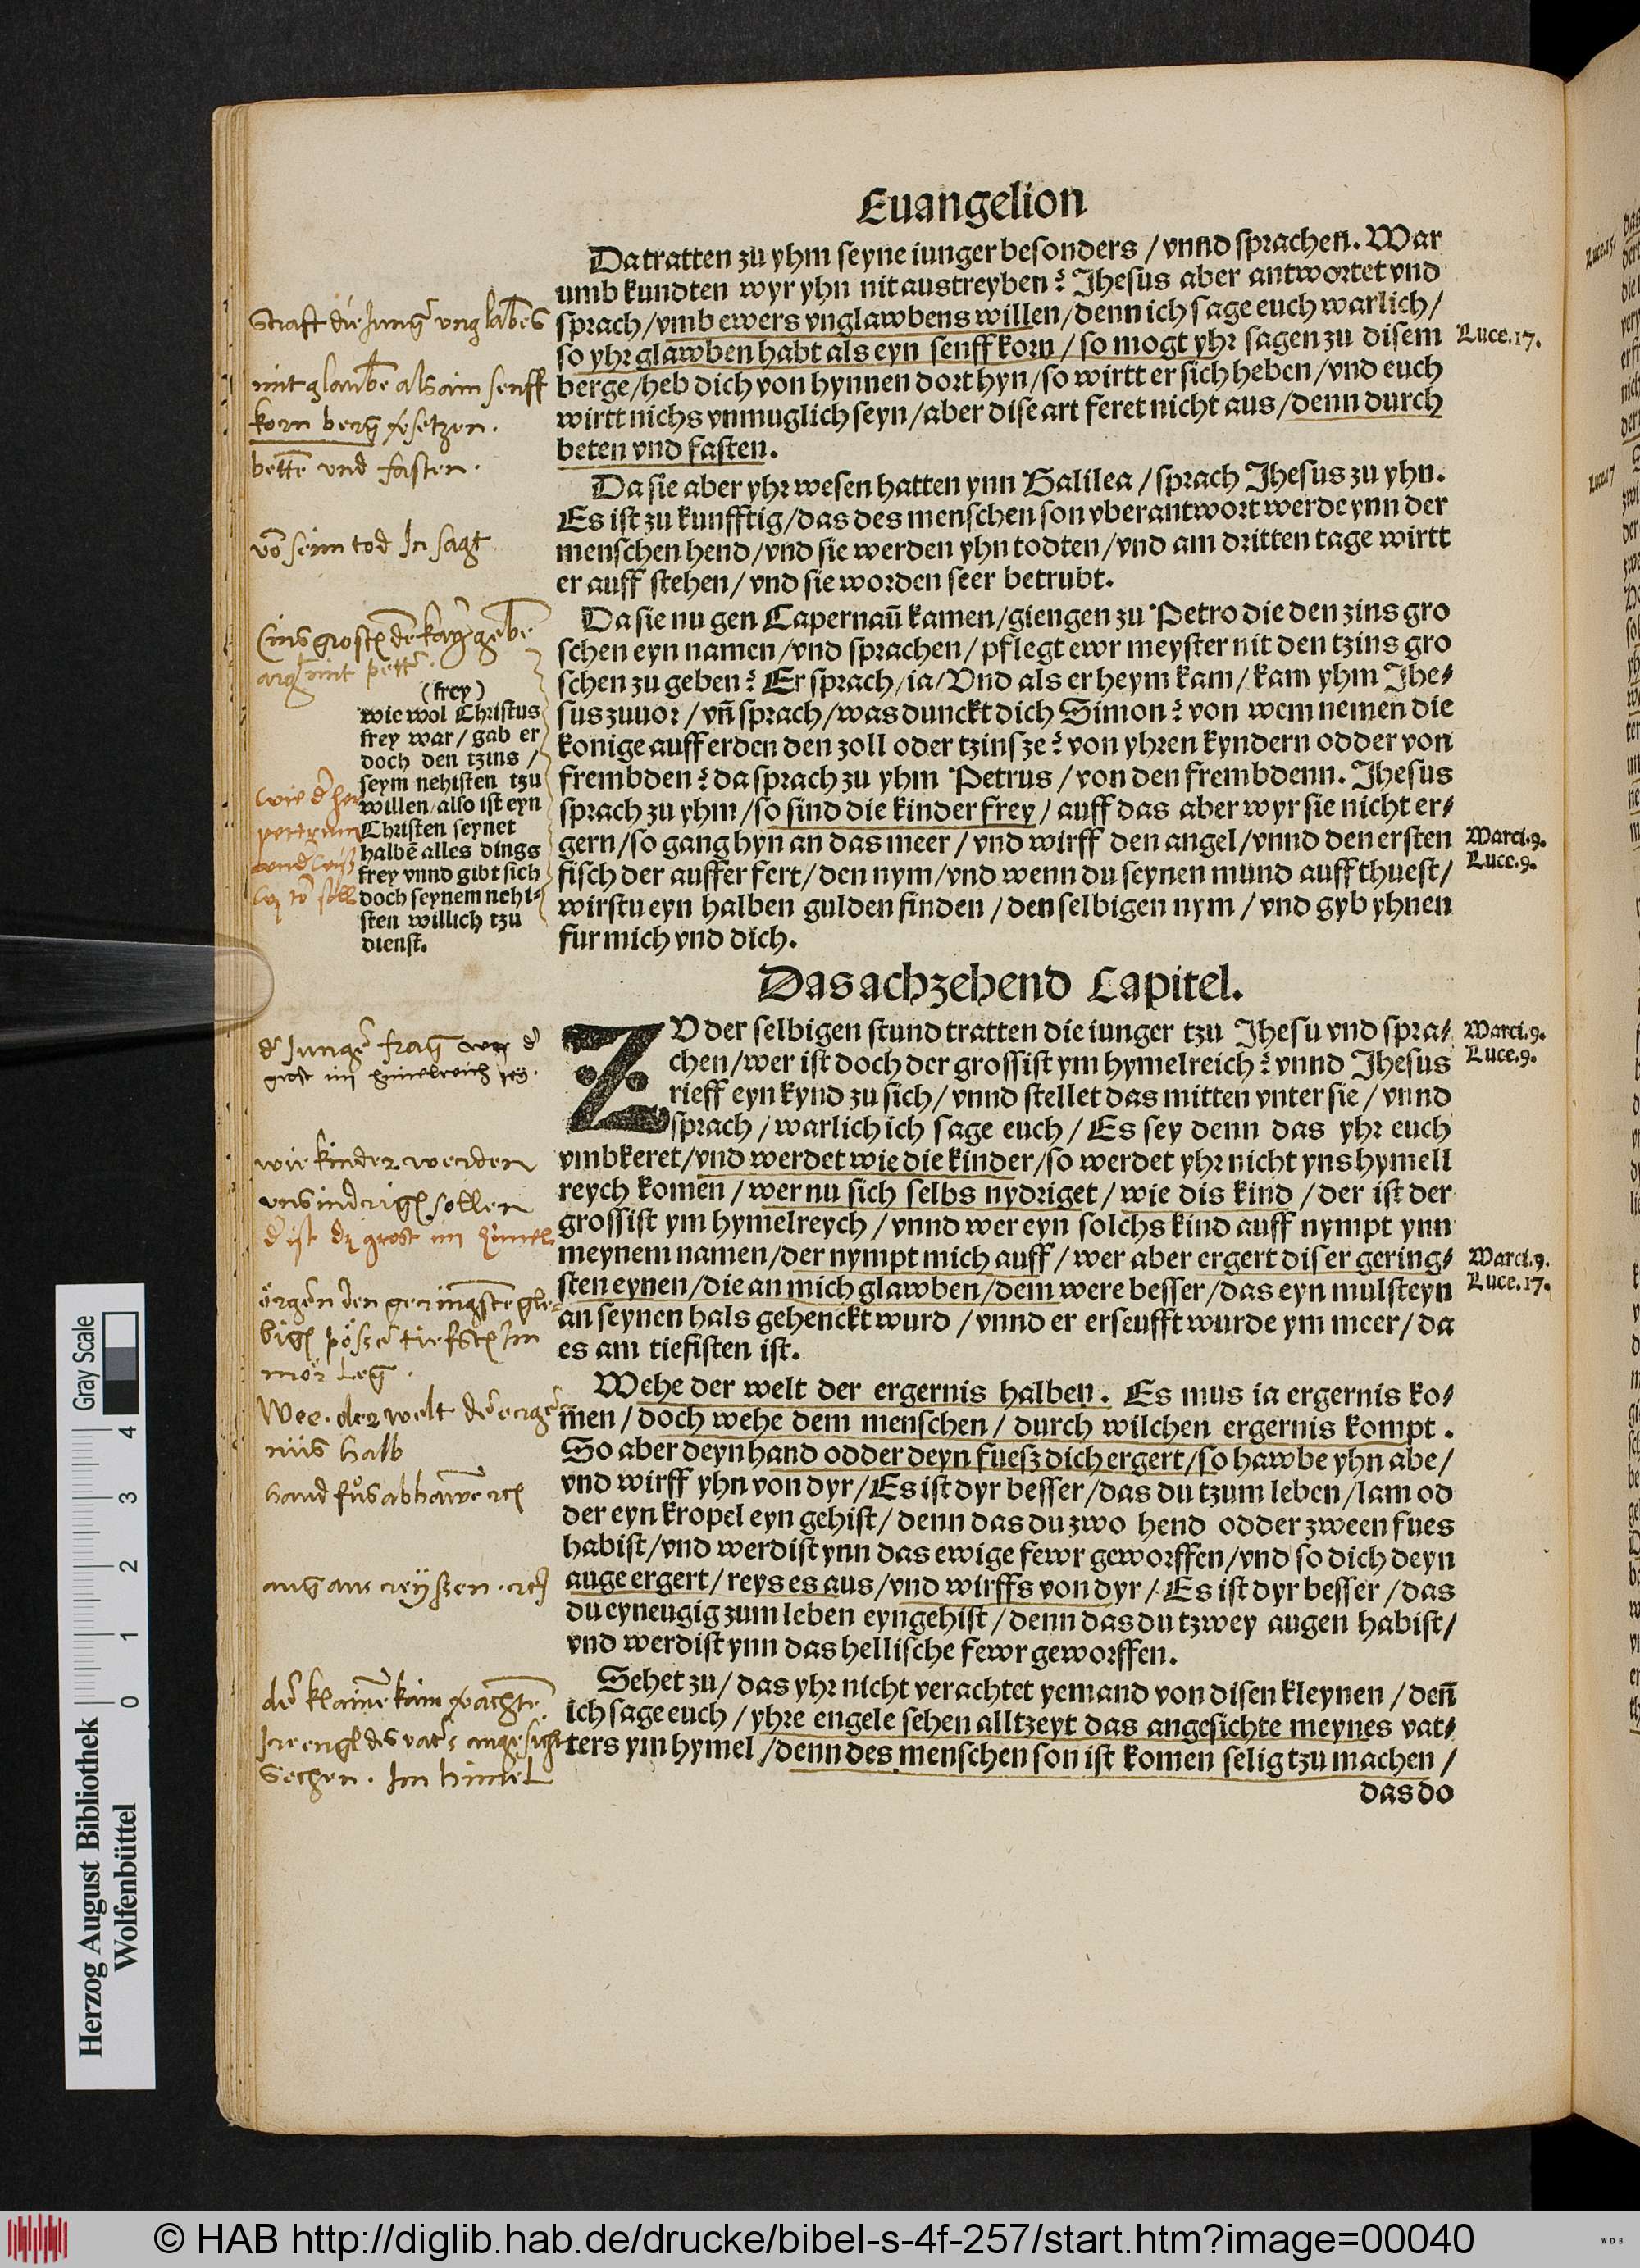 Euangelion
Da tratten zu yhm seyne iunger besonders / vnnd sprachen. War
umb kundten wyr yhn nit austreyben? Jhesus aber antwortet vnd
sprach / vmb ewers vnglawbens willen / denn ich sage euch warlich /
so yhr glawben habt als eyn senff korn / so mogt yhr sagen zu disem
berge / heb dich von hynnen dort hyn / so wirtt er sich heben / vnd euch
wirtt nichs vnmuglich seyn / aber dise art feret nicht aus / denn durch
beten vnd fasten.
Da sie aber yhr wesen hatten ynn Galilea / sprach Jhesus zu yhn.
Es ist zu kunfftig / das des menschen son vberantwort werde ynn der
menschen hend / vnd sie werden yhn todten / vnd am dritten tage wirtt
er auff stehen / vnd sie worden seer betrubt.
Da sie nu gen Capernaū kamen / giengen zu Petro die den zins gro
schen eyn namen / vnd sprachen / pflegt ewr meyster nit den tzins gro
schen zu geben? Er sprach / ia / Vnd als er heym kam / kam yhm Jhe-
sus zuuor / vn̄ sprach / was dunckt dich Simon? von wem nemen die
konige auff erden den zoll oder tzinsze? von yhren kyndern odder von
frembden? da sprach zu yhm Petrus / von den frembdenn. Jhesus
sprach zu yhm / so sind die kinder frey / auff das aber wyr sie nicht er-
gern / so gang hyn an das meer / vnd wirff den angel / vnnd den ersten
fisch der auffer fert / den nym / vnd wenn du seynen mund auff thuest /
wirstu eyn halben gulden finden / den selbigen nym / vnd gyb yhnen
fur mich vnd dich.
Luce.17.
Marci.9.
Luce.9.
Straft die Jung̃ vnglabēs
mit glaubē als ain senff
korn berg vsetzen.
bettē vnd fasten.
vō seim tod In sagt
(frey)
wie wol Christus
frey war / gab er
doch den tzins /
seym nehisten tzu
willen / also ist eyn
Christen seynet
halbē alles dings
frey vnnd gibt sich
doch seynem nehi-
sten willich tzu
dienst.
Das achzehend Capitel.
ZV der selbigen stund tratten die iunger tzu Jhesu vnd spra-
chen / wer ist doch der grossist ym hymelreich? vnnd Jhesus
rieff eyn kynd zu sich / vnnd stellet das mitten vnter sie / vnnd
sprach / warlich ich sage euch / Es sey denn das yhr euch
vmbkeret / vnd werdet wie die kinder / so werdet yhr nicht yns hymell
reych komen / wer nu sich selbs nydriget / wie dis kind / der ist der
grossist ym hymelreych / vnnd wer eyn solchs kind auff nympt ynn
meynem namen / der nympt mich auff / wer aber ergert diser gering-
sten eynen / die an mich glawben / dem were besser / das eyn mulsteyn
an seynen hals gehenckt wurd / vnnd er erseufft wurde ym meer / da
es am tiefisten ist.
Wehe der welt der ergernis halben. Es mus ia ergernis ko-
men / doch wehe dem menschen / durch wilchen ergernis kompt.
So aber deyn hand odder deyn fuesz dich ergert / so hawbe yhn abe /
vnd wirff yhn von dyr / Es ist dyr besser / das du tzum leben / lam od
der eyn kropel eyn gehist / denn das du zwo hend odder zween fues
habist / vnd werdist ynn das ewige fewr geworffen / vnd so dich deyn
auge ergert / reys es aus / vnd wirffs von dyr / Es ist dyr besser / das
du eyneugig zum leben eyngehist / denn das du tzwey augen habist /
vnd werdist ynn das hellische fewr geworffen.
Sehet zu / das yhr nicht verachtet yemand von disen kleynen / den̄
ich sage euch / yhre engele sehen alltzeyt das angesichte meynes vat-
ters ym hymel / denn des menschen son ist komen selig tzu machen /
das do
Marci.9.
Luce.9.
Marci.9.
Luce.17.
wie kinder werden
sollen
Wee. der welt
nüs halb
Im himel
Gray Scale
0 1 2 3 4
Herzog August Bibliothek
Wolfenbüttel
© HAB http://diglib.hab.de/drucke/bibel-s-4f-257/start.htm?image=00040
WDB